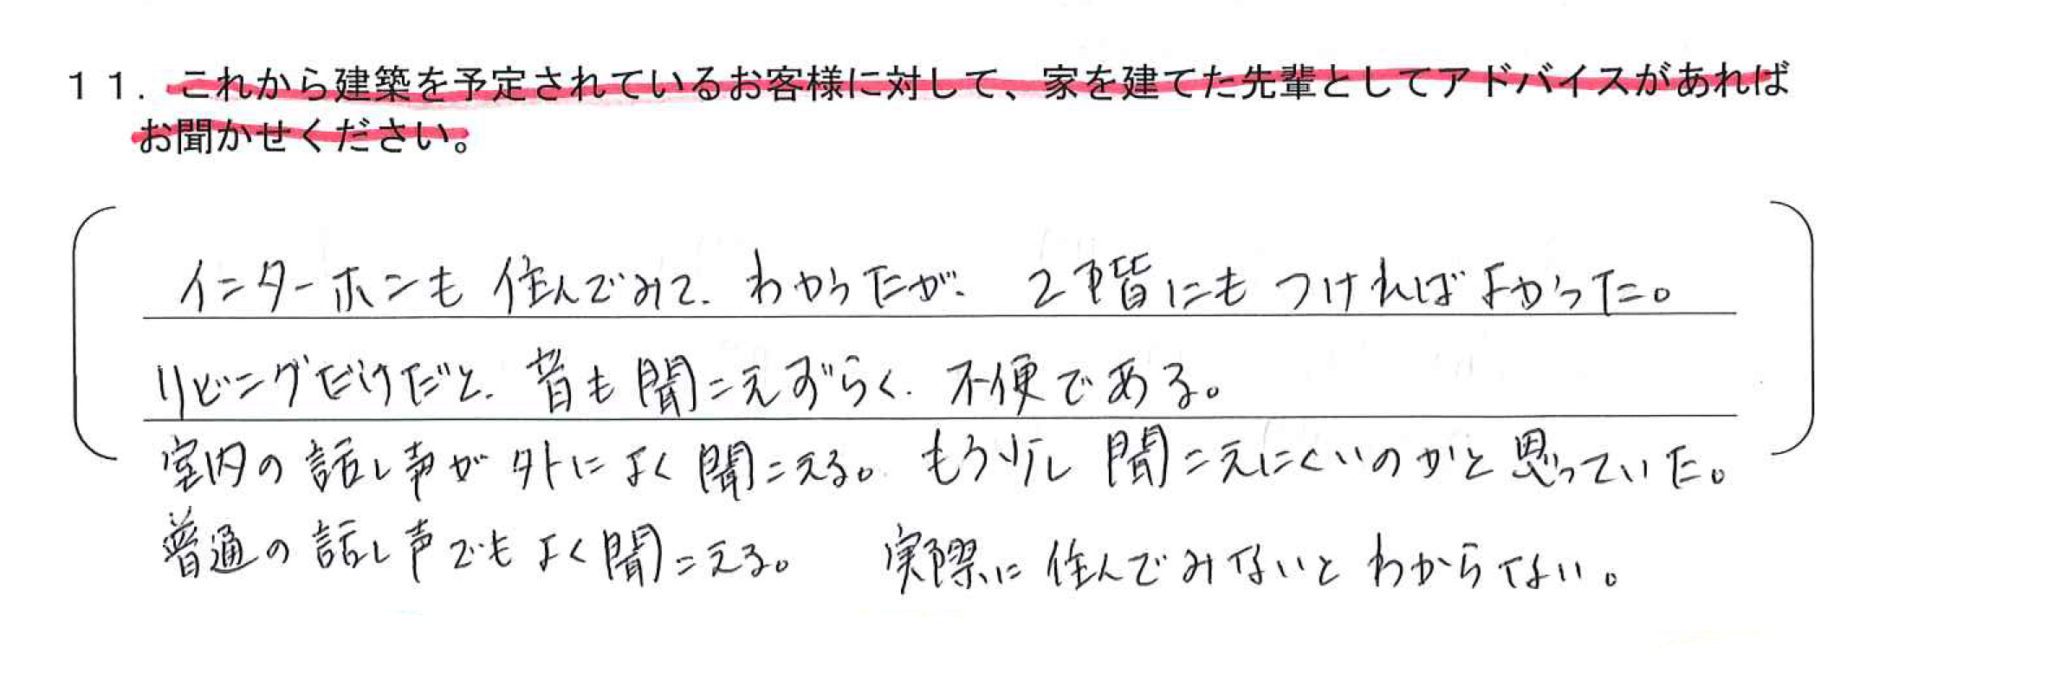 11. これから建築を予定されているお客様に対して、家を建てた先輩としてアドバイスがあれば
お聞かせください。
インターホンも住んでみて、わかったが、2階にもつければよかった。
リビングだけだと、音も聞こえずらく、不便である。
室内の話し声が外によく聞こえる。もう少し聞こえにくいのかと思っていた。
普通の話し声でもよく聞こえる。 実際に住んでみないとわからない。